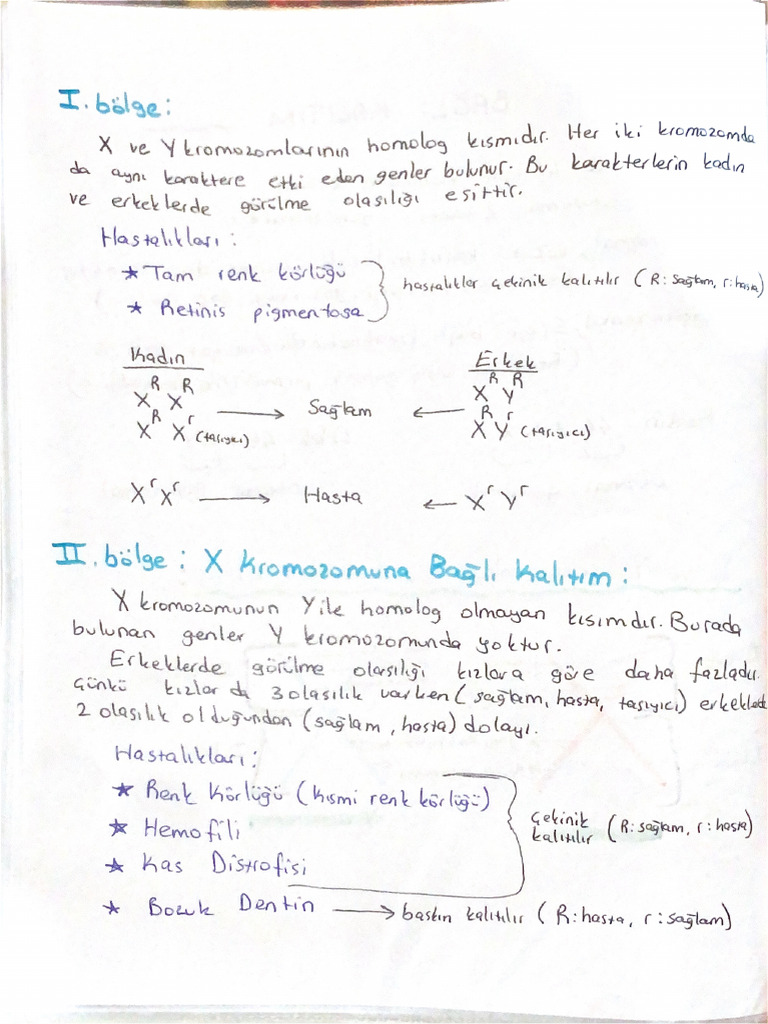 I. bölge:
X ve Y kromozomlarının homolog kısmıdır. Her iki kromozomda
da aynı karaktere etki eden genler bulunur. Bu karakterlerin kadın
ve erkeklerde görülme olasılığı eşittir.
Hastalıkları:
* Tam renk körlüğü
* Retinis pigmentosa
hastalıklar çekinik kalıtılır (R: Sağlam, r: hasta)
Kadın Erkek
X^R X^R → Sağlam ← X^R Y^R
X^R X^r (taşıyıcı) X^R Y^r (taşıyıcı)
X^r X^r → Hasta ← X^r Y^r
II. bölge: X Kromozomuna Bağlı Kalıtım:
X kromozomunun Y ile homolog olmayan kısımdır. Burada
bulunan genler Y kromozomunda yoktur.
Erkeklerde görülme olasılığı kızlara göre daha fazladır.
Çünkü kızlar da 3 olasılık varken (sağlam, hasta, taşıyıcı) erkeklerde
2 olasılık olduğundan (sağlam, hasta) dolayı.
Hastalıkları:
* Renk Körlüğü (Kısmi renk körlüğü)
* Hemofili
* Kas Distrofisi
çekinik
kalıtılır (R: sağlam, r: hasta)
* Bozuk Dentin → baskın kalıtılır (R: hasta, r: sağlam)